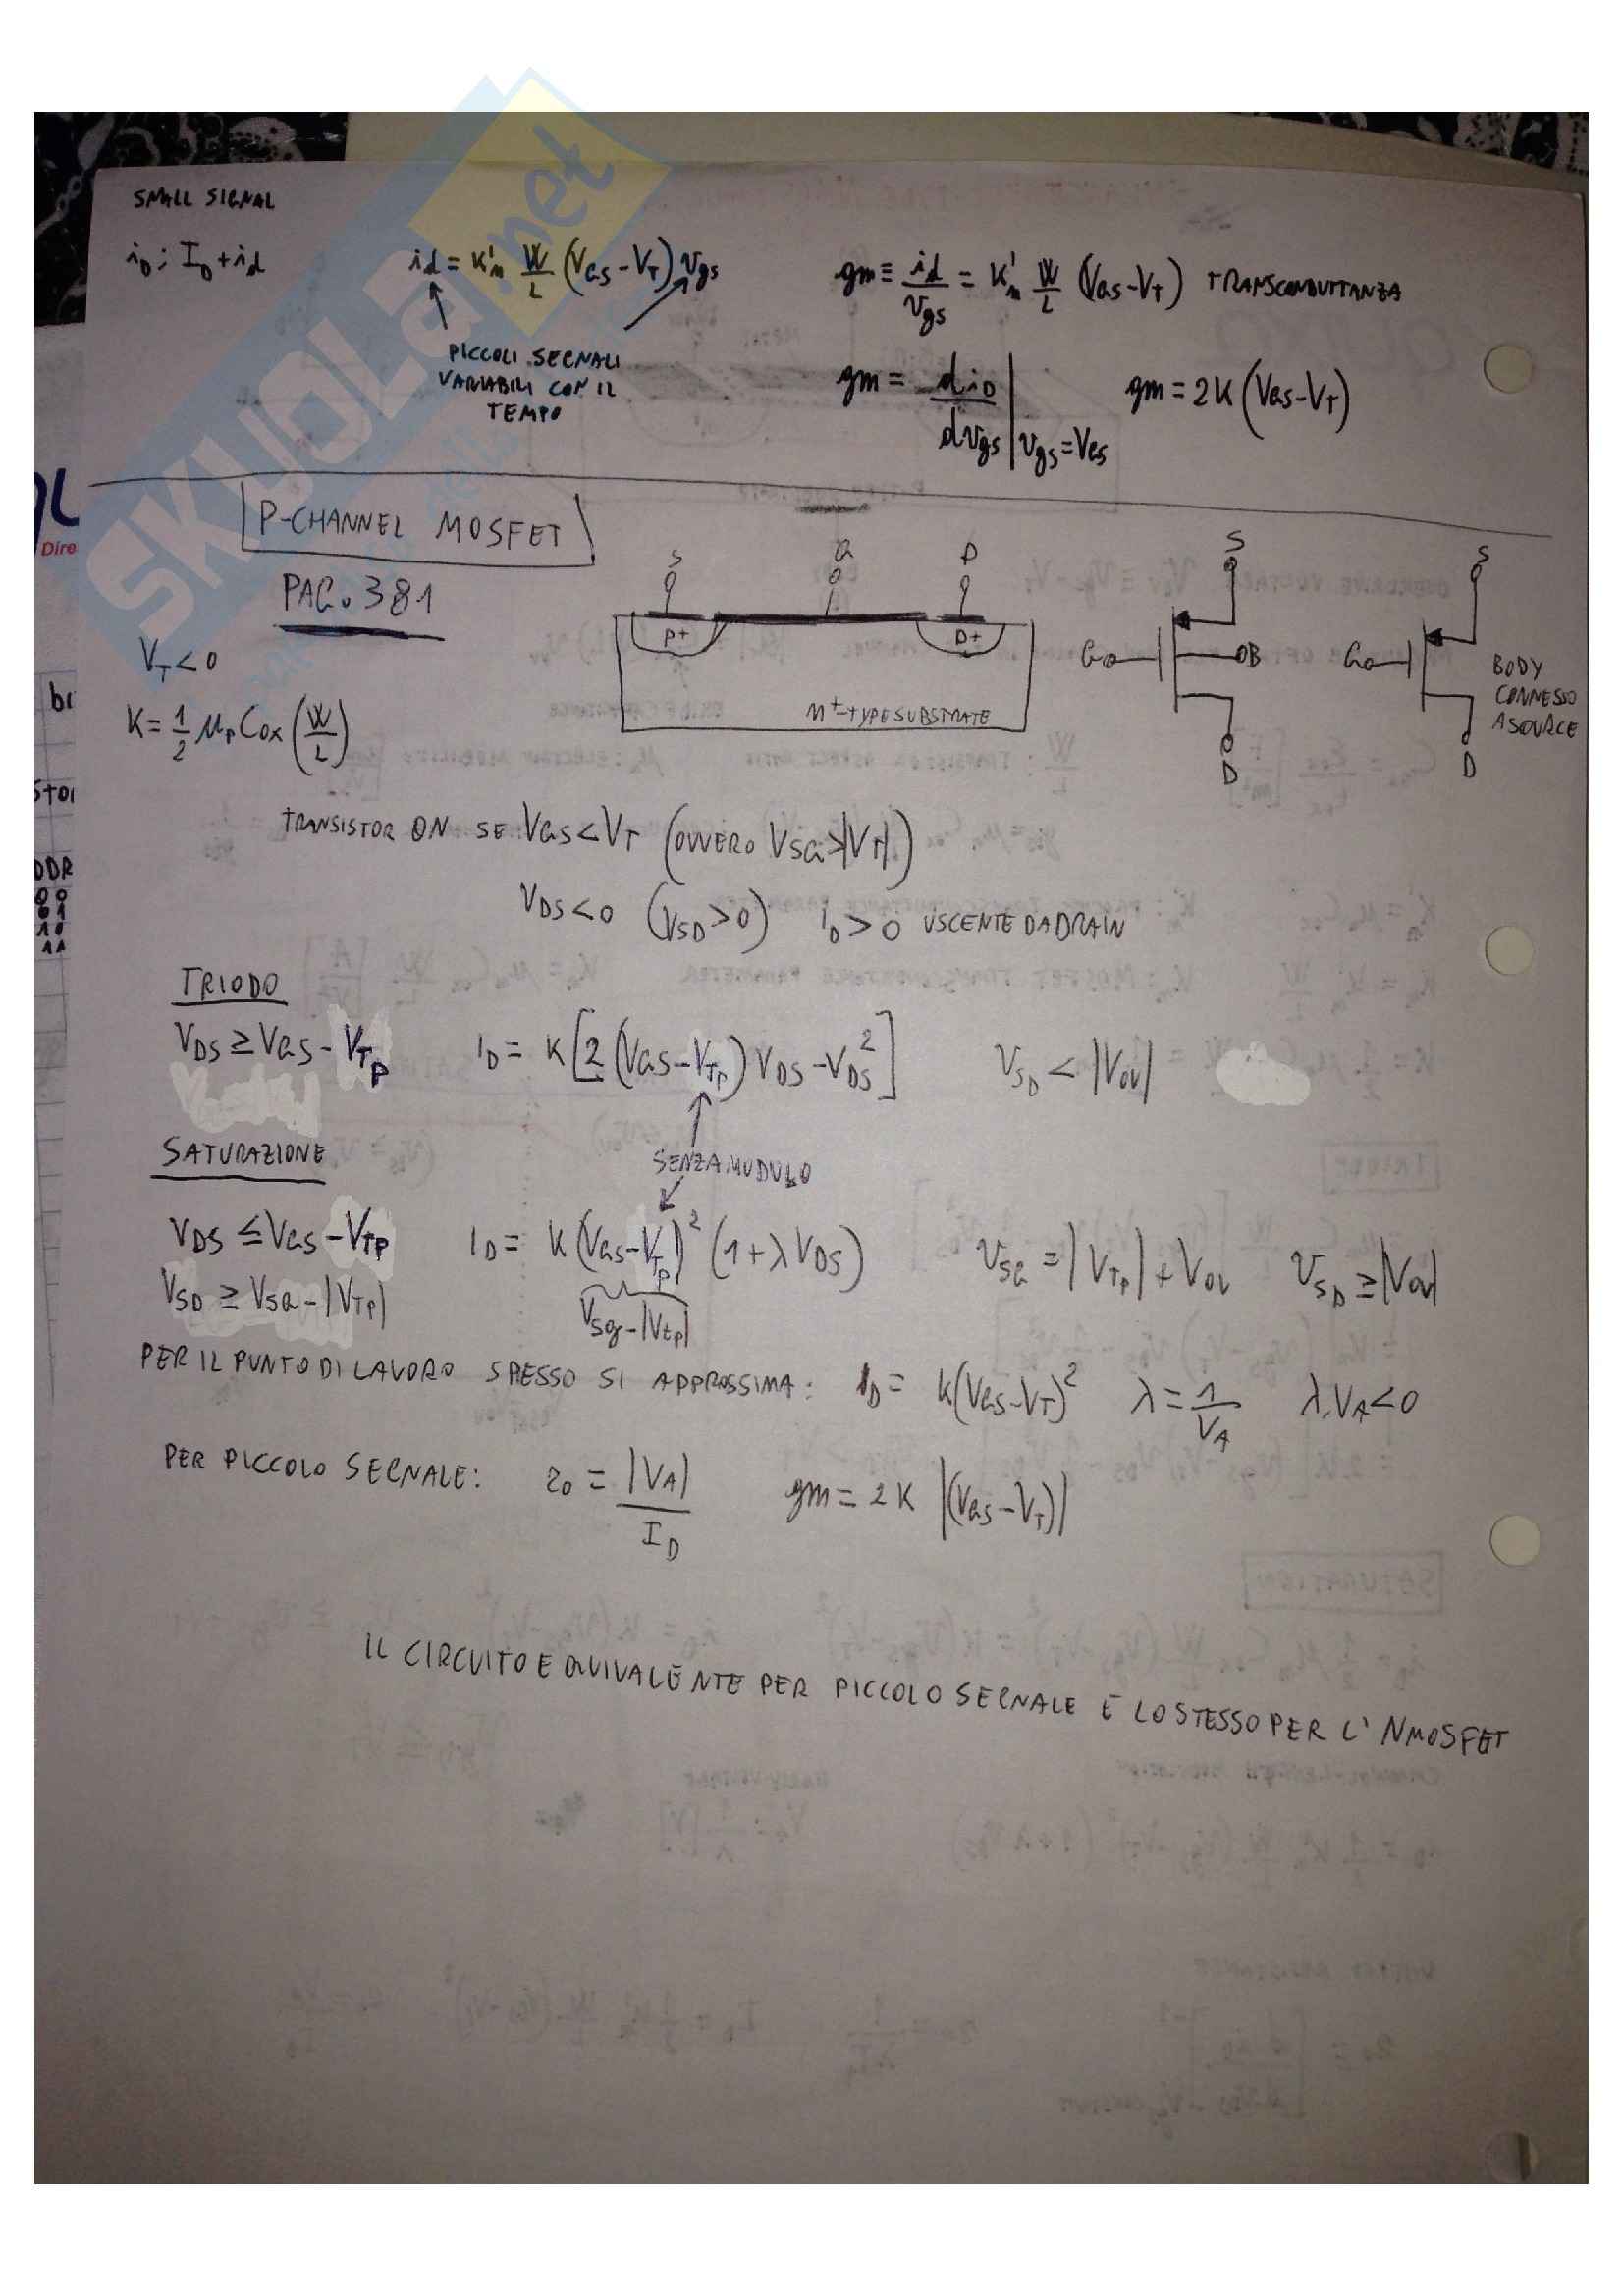 SKUOLA.net
SMALL SIGNAL
i_D : I_D + i_d
i_d = K'_n W/L (V_GS - V_T) v_gs
gm ≡ i_d / v_gs = K'_n W/L (V_GS - V_T) TRANSCONDUTTANZA
PICCOLI SEGNALI
VARIABILI CON IL
TEMPO
gm = d i_D / d v_gs | v_gs = V_GS
gm = 2K (V_GS - V_T)
P-CHANNEL MOSFET
PAG. 381
Dire
V_T < 0
K = 1/2 μ_p Cox (W/L)
S G D
P+ P+
n+-TYPE SUBSTRATE
S
G B
D
S
G
D
BODY
CONNESSO
A SOURCE
DDR
TRANSISTOR ON SE V_GS < V_T (OVVERO V_SG > |V_T|)
V_DS < 0 (V_SD > 0) i_D > 0 USCENTE DA DRAIN
TRIODO
V_DS ≥ V_GS - V_Tp
I_D = K [2 (V_GS - V_Tp) V_DS - V_DS^2]
V_SD < |V_OV|
SENZA MODULO
SATURAZIONE
V_DS ≤ V_GS - V_Tp
I_D = K (V_GS - V_Tp)^2 (1 + λ V_DS)
V_SG = |V_Tp| + V_OV
V_SD ≥ |V_OV|
V_SD ≥ V_SG - |V_Tp|
V_sg - |V_tp|
PER IL PUNTO DI LAVORO SPESSO SI APPROSSIMA: I_D = K (V_GS - V_T)^2 λ = 1/V_A λ, V_A < 0
PER PICCOLO SEGNALE: r_o = |V_A| / I_D gm = 2K |(V_GS - V_T)|
IL CIRCUITO EQUIVALENTE PER PICCOLO SEGNALE E LO STESSO PER L' NMOSFET